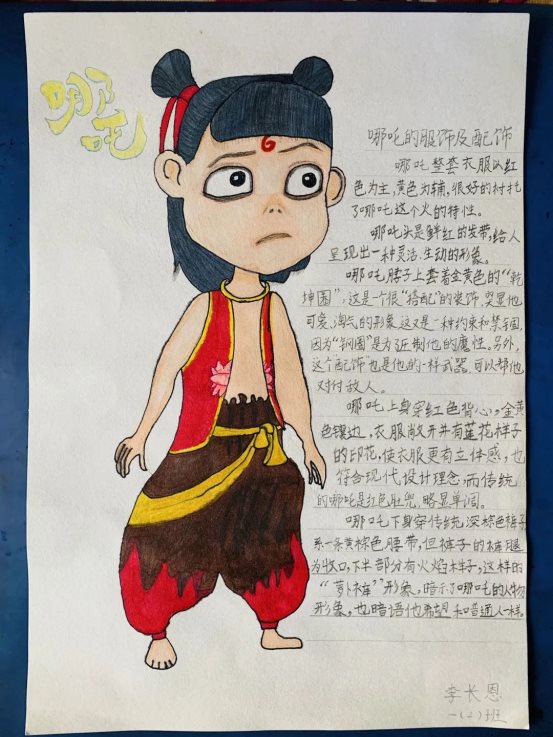 哪吒
哪吒的服饰及配饰
哪吒整套衣服以红
色为主,黄色为辅,很好的衬托
了哪吒这个火的特性。
哪吒头是鲜红的发带,给人
呈现出一种灵活、生动的形象。
哪吒脖子上套着金黄色的“乾
坤圈”,这是个很“搭配”的装饰,突显他
可爱,淘气的形象,这又是一种约束和禁锢,
因为“钢圈”是为了压制他的魔性,另外,
这个配饰”也是他的一样武器,可以帮他
对付敌人。
哪吒上身穿红色背心,金黄
色镶边,衣服敞开并有莲花样子
的印花,使衣服更有立体感,也
符合现代设计理念,而传统
的哪吒是红色肚兜,略显单调。
哪吒下身穿传统深棕色裤子
系一条黄棕色腰带,但裤子的裤腿
为收口,下半部分有火焰样子,这样的
“萝卜裤”形象,暗示了哪吒的人物
形象,也暗语他希望和普通人一样。
李长恩
一(2)班